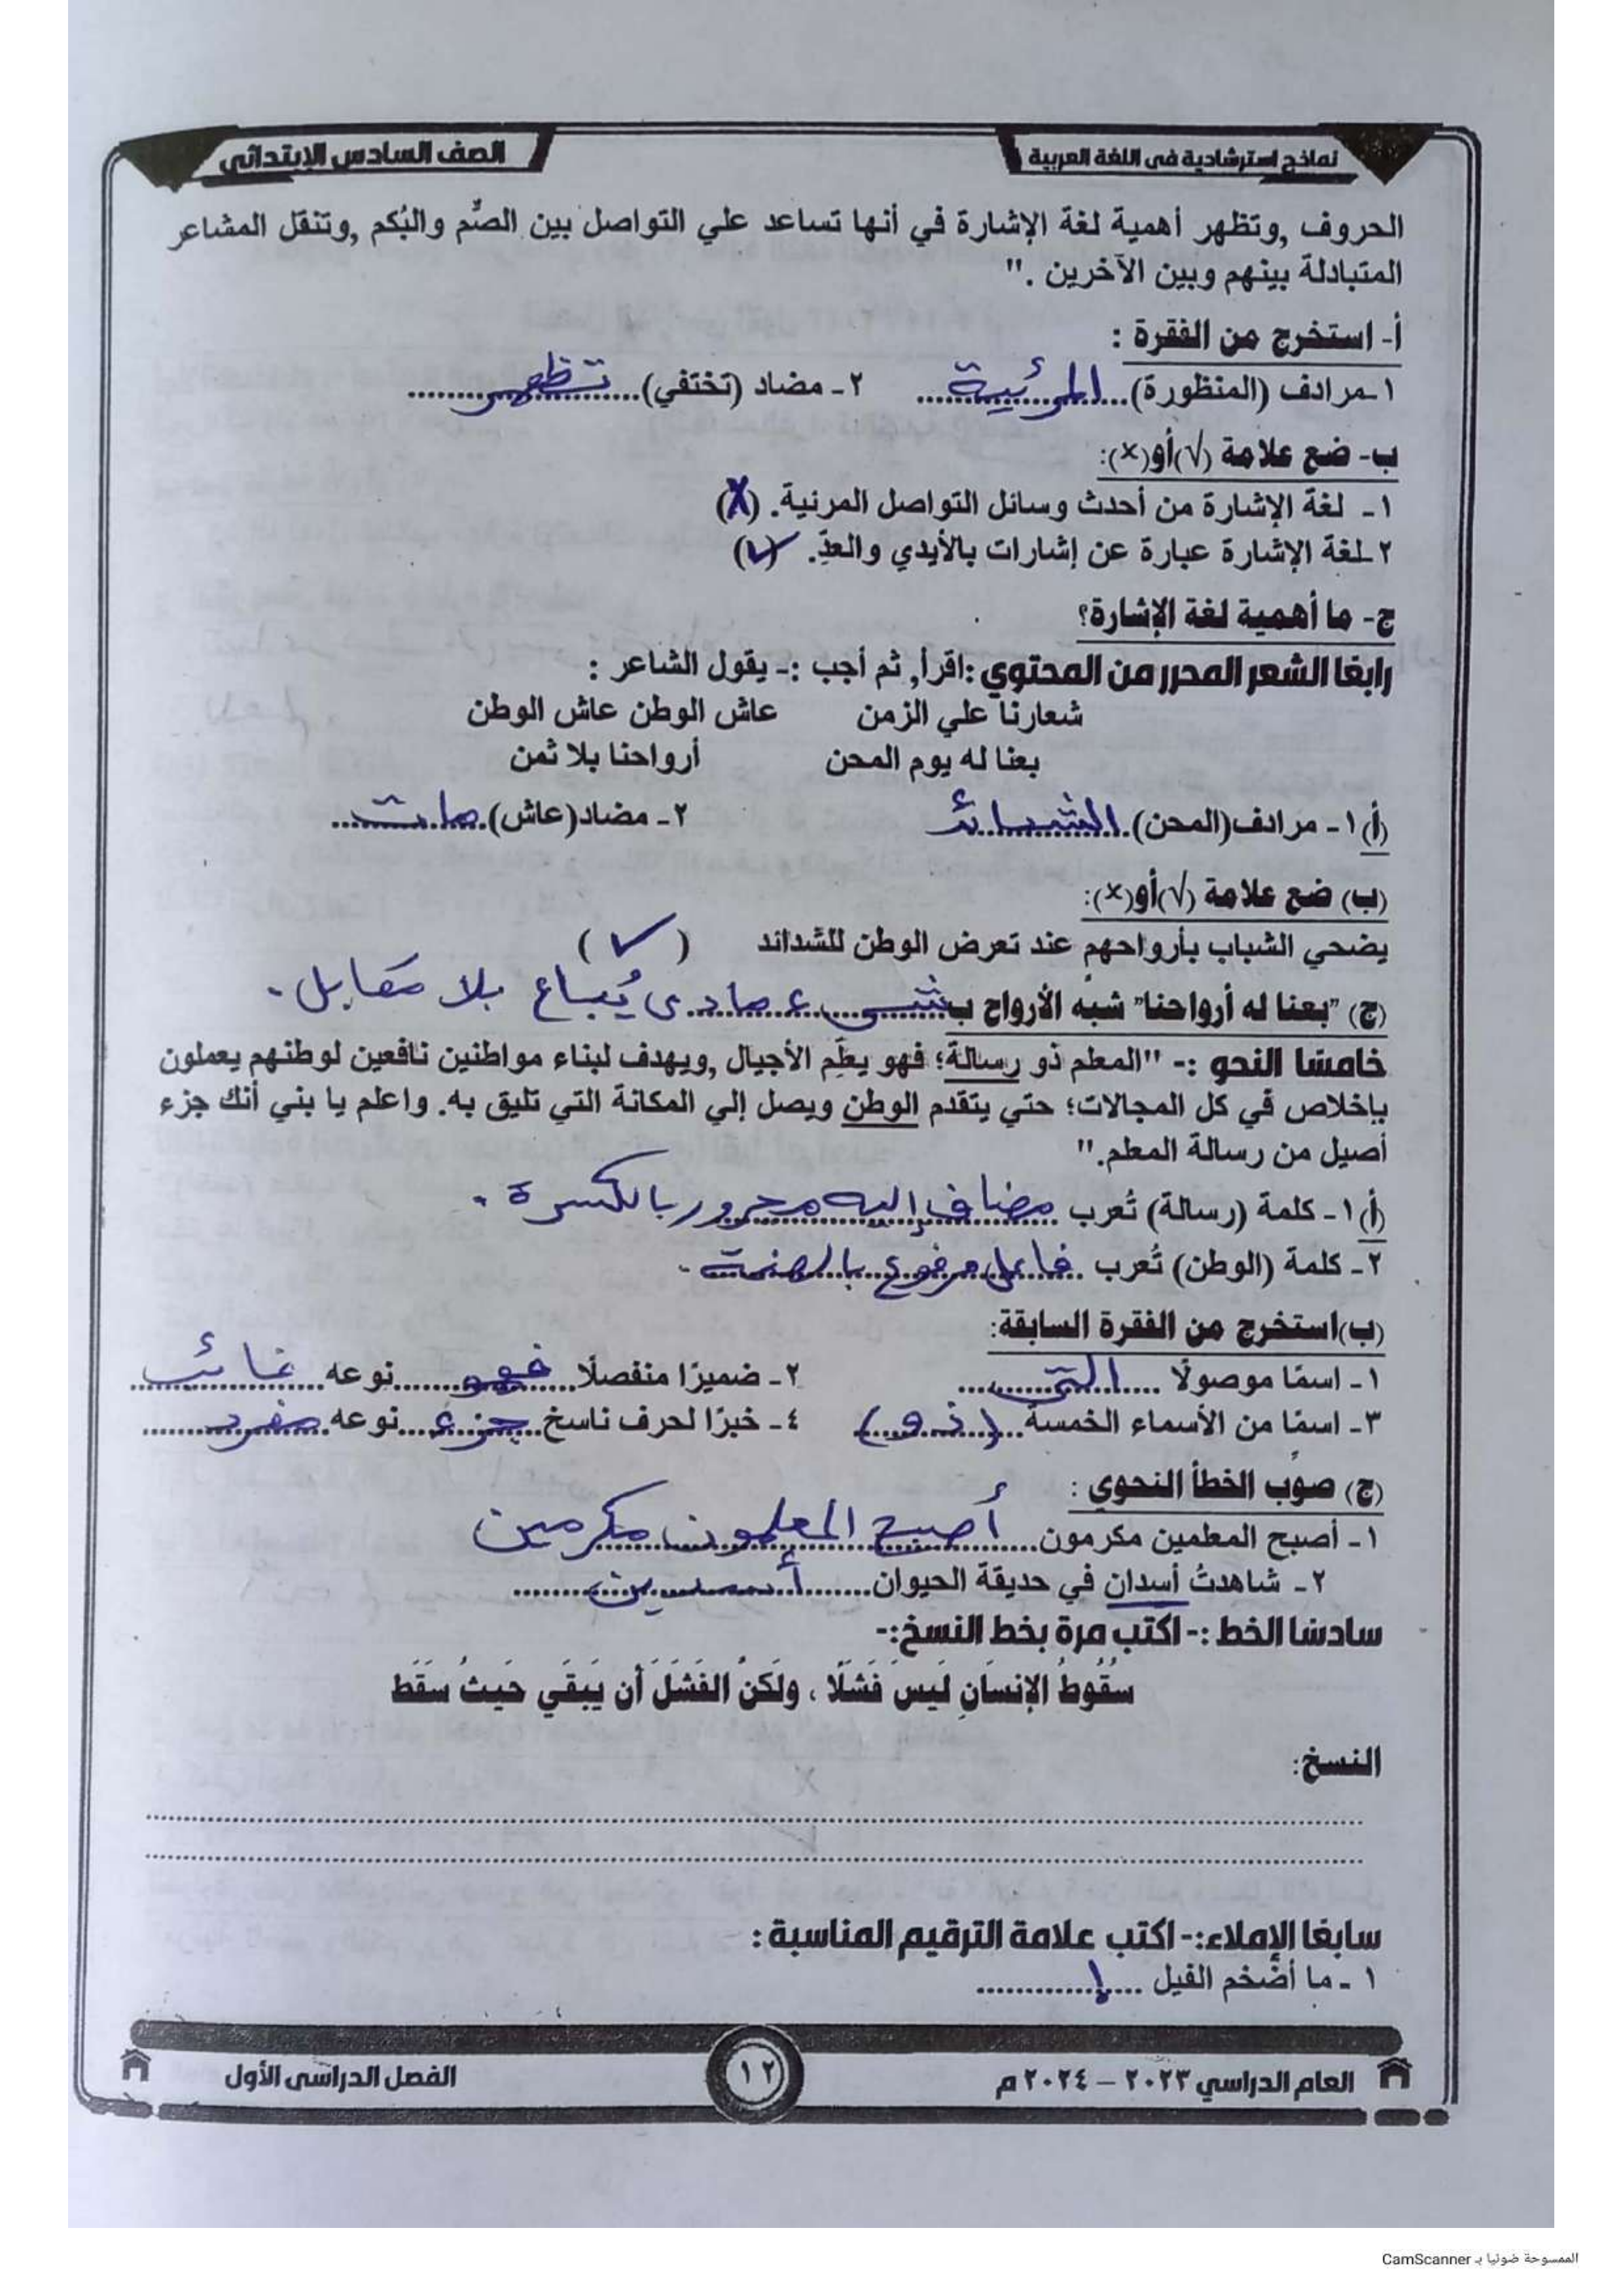 نماذج استرشادية فى اللغة العربية
الصف السادس الابتدائى
الحروف ,وتظهر أهمية لغة الإشارة في أنها تساعد علي التواصل بين الصُّم والبُكم ,وتنقل المشاعر
المتبادلة بينهم وبين الآخرين ."
أ- استخرج من الفقرة :
١-مرادف (المنظورة)...المرئية... ٢- مضاد (تختفي)...تظهر...
ب- ضع علامة (√)أو(×):
١- لغة الإشارة من أحدث وسائل التواصل المرئية. (X)
٢-لغة الإشارة عبارة عن إشارات بالأيدي والعدِّ. (✓)
ج- ما أهمية لغة الإشارة؟
رابعًا الشعر المحرر من المحتوي :اقرأ, ثم أجب :- يقول الشاعر :
شعارنا علي الزمن عاش الوطن عاش الوطن
بعنا له يوم المحن أرواحنا بلا ثمن
(أ) ١- مرادف(المحن)...الشدائد... ٢- مضاد(عاش)...مات...
(ب) ضع علامة (√)أو(×):
يضحي الشباب بأرواحهم عند تعرض الوطن للشدائد (✓)
(ج) "بعنا له أرواحنا" شبه الأرواح ب...شىء مادى يُباع بلا مقابل .
خامسًا النحو :- "المعلم ذو رسالة؛ فهو يعلِّم الأجيال ,ويهدف لبناء مواطنين نافعين لوطنهم يعملون
بإخلاص في كل المجالات؛ حتي يتقدم الوطن ويصل إلي المكانة التي تليق به. واعلم يا بني أنك جزء
أصيل من رسالة المعلم."
(أ) ١- كلمة (رسالة) تُعرب ...مضاف إليه مجرور بالكسرة .
٢- كلمة (الوطن) تُعرب ...فاعل مرفوع بالضمة .
(ب)استخرج من الفقرة السابقة:
١- اسمًا موصولًا ...التى... ٢- ضميرًا منفصلًا...فهو...نوعه...غائب...
٣- اسمًا من الأسماء الخمسة...(ذو)... ٤- خبرًا لحرف ناسخ...جزء...نوعه...مفرد...
(ج) صوِّب الخطأ النحوي :
١- أصبح المعلمين مكرمون...أصبح المعلمون مكرمين
٢- شاهدتُ أسدان في حديقة الحيوان...أسدين...
سادسًا الخط :- اكتب مرة بخط النسخ:-
سُقُوطُ الإنسَانِ لَيسَ فَشَلًا ، ولَكنَّ الفَشَلَ أن يَبقَي حَيثُ سَقَط
النسخ:
سابعًا الإملاء:- اكتب علامة الترقيم المناسبة :
١ - ما أضخم الفيل ...!...
العام الدراسي ٢٠٢٣ – ٢٠٢٤ م
١٢
الفصل الدراسى الأول
الممسوحة ضوئيا بـ CamScanner